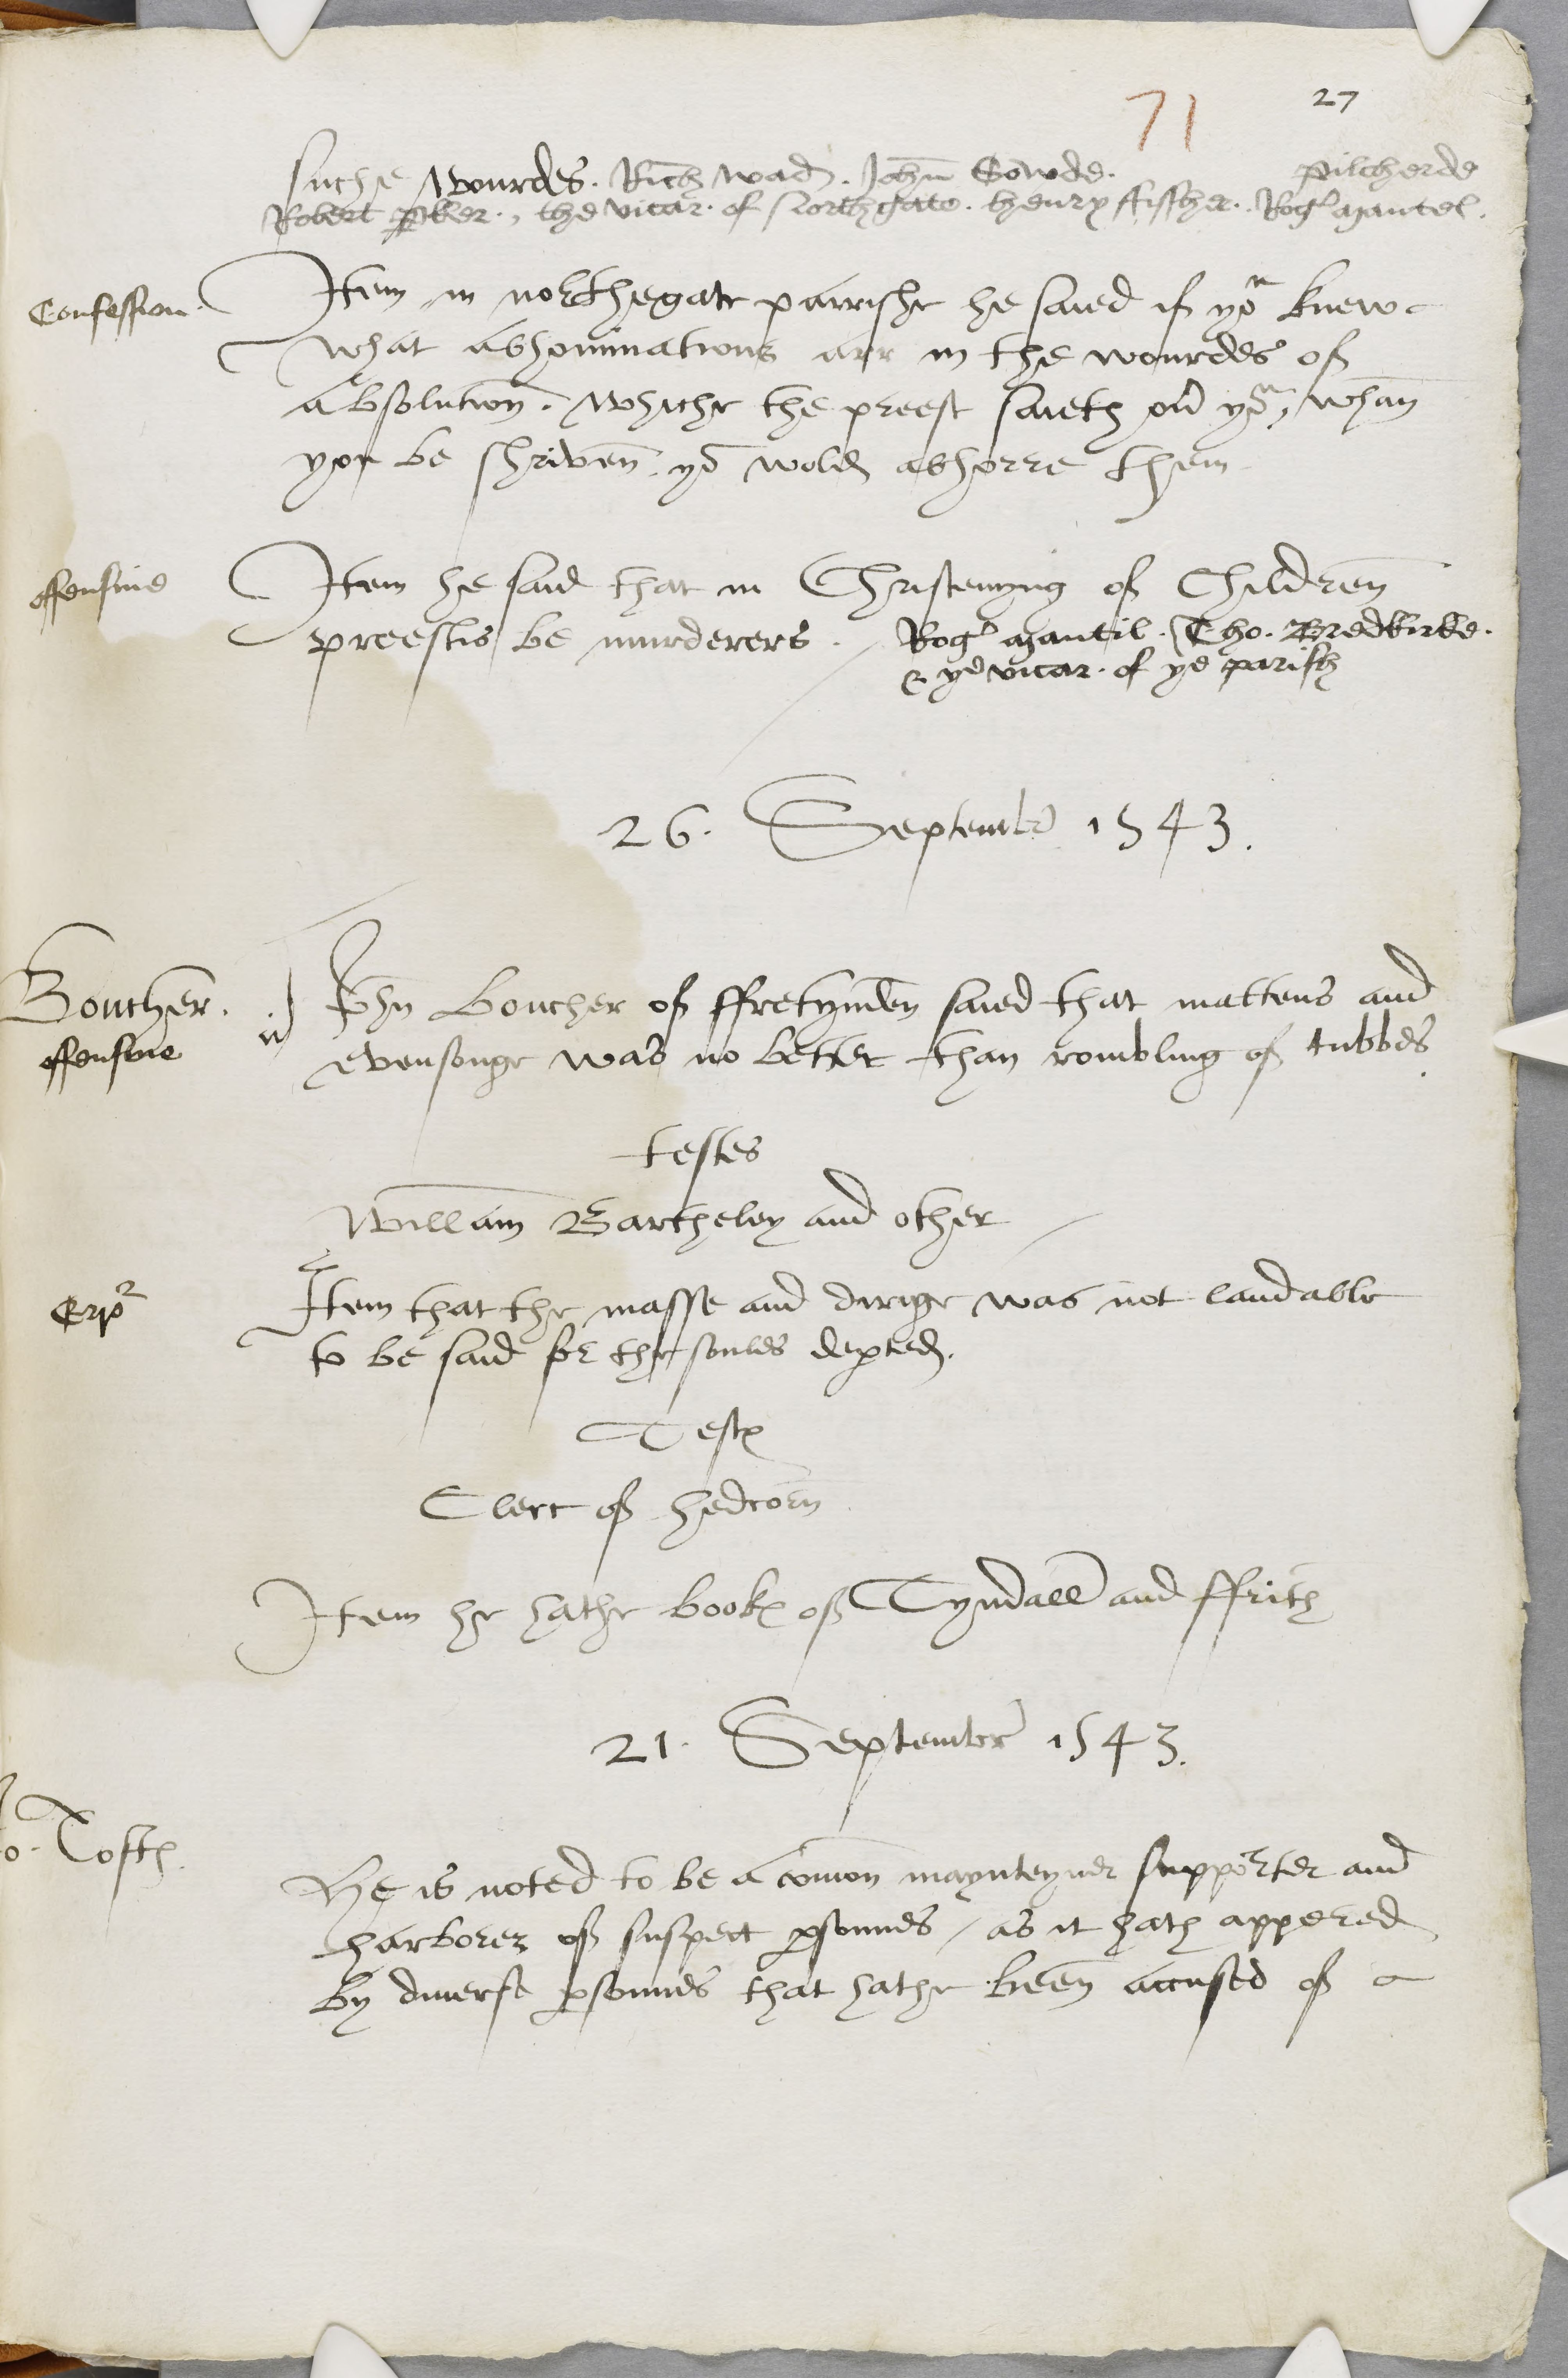 71 27
suche wourdes. Rich wad. John Gowde. pilcherde
Robert p̱ker., the vicar. of Northgate. henry ffissher. Rogʳ Mantel.
Confession. Item in northegate parrishe he saied if yoᵘ knew
what abhominations arr in the wourdes of
absolution. whiche the preest saieth on yoᵘ, whan
yoe be shriven. yo wold abhorre them
offensive Item he said that in Christenyng of Children
preestis be murderers. Rogʳ Mantil. Tho. Bredkirke.
& yͤ vicar. of ye parish
26. Septembr 1543.
Boucher. John Boucher of ffretynden saied that mattens and
offensive evensonge was no better than rombling of tubbes.
testes
William Bartheley and other
Item that the masse and dirige was not laudable
to be said for the soules dep̱ted.
Test
Clerc of hedcorn
Item he hathe book of Tyndall and ffrith
21. Septembr 1543.
Jo. Tofth.
He is noted to be a comon maynteyner supporter and
harborer of suspect p̱sonnes, as it hath appered
by diverse p̱sonnes that hathe been accused of